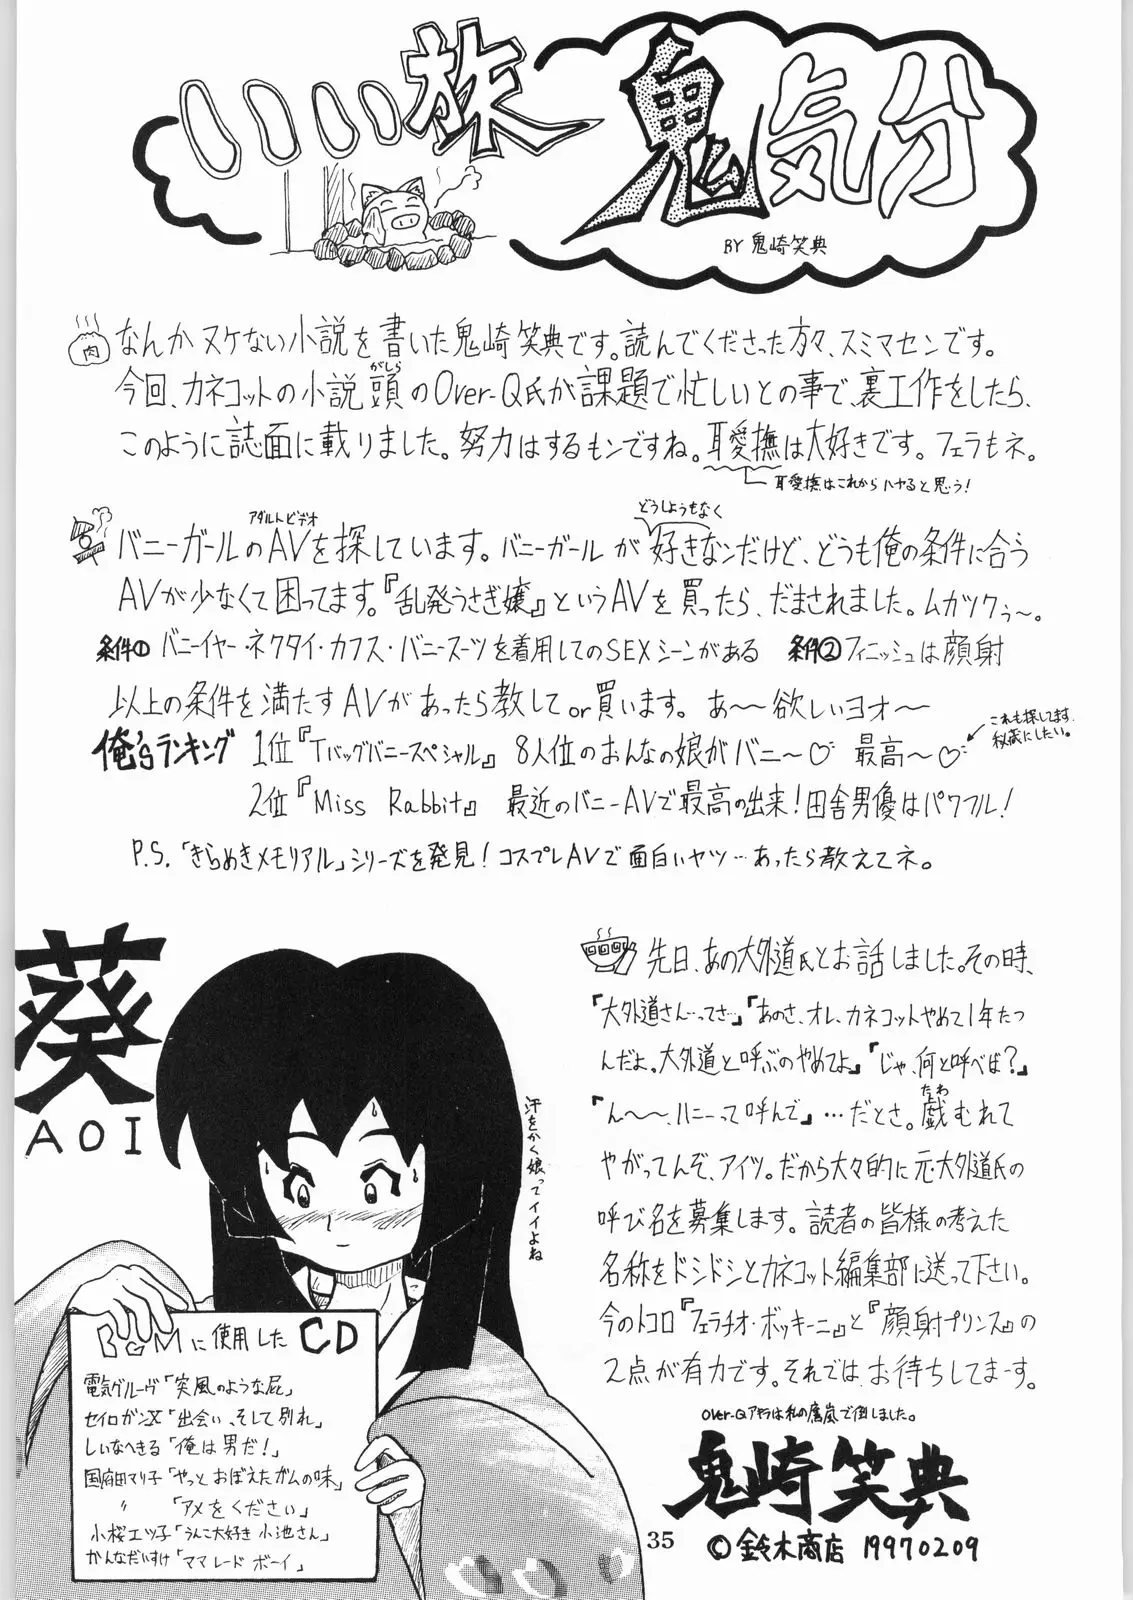 いい旅鬼気分
BY 鬼崎笑典
肉
なんかヌケない小説を書いた鬼崎笑典です。読んでくださった方々、スミマセンです。
今回、カネコットの小説頭のOver-Q氏が課題で忙しいとの事で、裏工作をしたら、
がしら
このように誌面に載りました。努力はするモンですね。耳愛撫は大好きです。フェラもネ。
耳愛撫はこれからハヤると思う!
バニーガールのAVを探しています。バニーガールが好きなンだけど、どうも俺の条件に合う
アダルトビデオ
どうしようもなく
AVが少なくて困ってます。『乱発うさぎ嬢』というAVを買ったら、だまされました。ムカツクぅ〜。
条件① バニーイヤー・ネクタイ・カフス・バニースーツを着用してのSEXシーンがある 条件② フィニッシュは顔射
以上の条件を満たすAVがあったら教してor買います。あ〜〜欲しいヨオ〜
俺'sランキング 1位『Tバックバニースペシャル』 8人位のおんなの娘がバニ〜♡ 最高〜♡
これも探してます。
秘蔵にしたい。
2位『Miss Rabbit』 最近のバニーAVで最高の出来!田舎男優はパワフル!
P.S.「きらめきメモリアル」シリーズを発見!コスプレAVで面白いヤツ…あったら教えてネ。
葵
AOI
汗をかく娘ってイイよね
BGMに使用したCD
電気グルーヴ「突風のような屁」
セイロガン又「出会い、そして別れ」
しいなへきる「俺は男だ!」
国府田マリ子「やっとおぼえたガムの味」
〃 「アメをください」
小桜エツ子「うんこ大好き小池さん」
かんなだいすけ「ママレードボーイ」
先日、あの大外道氏とお話しました。その時、
『大外道さん…ってさ…』『あのさ、オレ、カネコットやめて1年たつ
んだよ。大外道と呼ぶのやめてよ』『じゃ、何と呼べば?』
『ん〜〜、ハニーって呼んで』…だとさ。戯むれて
たわ
やがってんぞ、アイツ。だから大々的に元・大外道氏の
呼び名を募集します。読者の皆様の考えた
名称をドシドシとカネコット編集部に送って下さい。
今のトコロ『フェラチオ・ボッキーニ』と『顔射プリンス』の
2点が有力です。それでは、お待ちしてまーす。
Over-Qアキラは私の
で倒しました。
鬼崎笑典
©鈴木商店 19970209
35